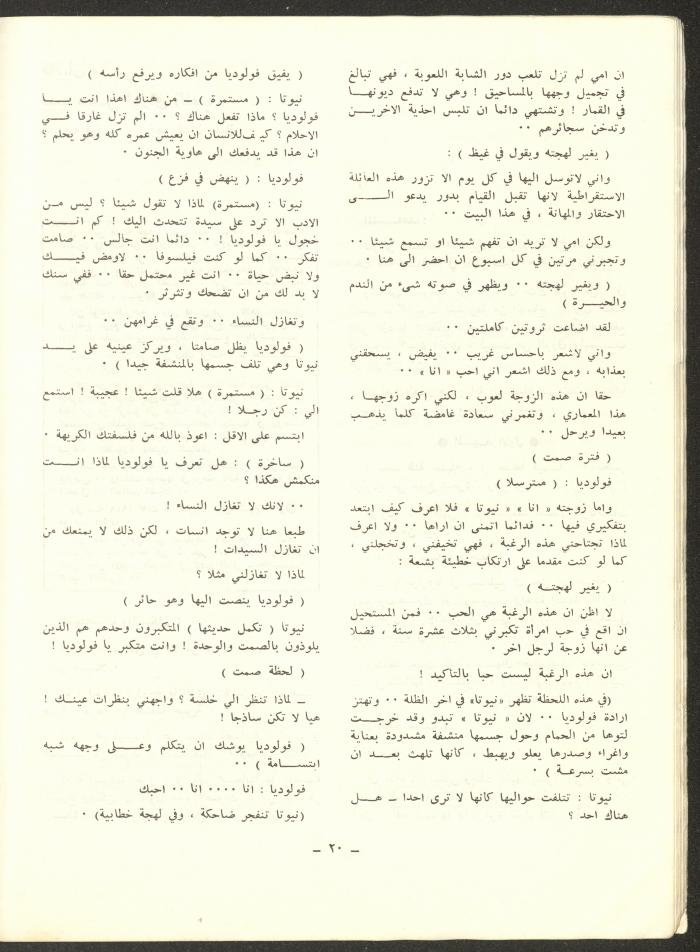 ان امي لم تزل تلعب دور الشابة اللعوبة ، فهي تبالغ
في تجميل وجهها بالمساحيق ! وهي لا تدفع ديونهـــا
في القمار ! وتشتهي دائما ان تلبس احذية الاخريــن
وتدخن سجائرهم ٠٠
( يغير لهجته ويقول في غيظ ) :
واني لاتوسل اليها في كل يوم الا تزور هذه العائلة
الاستقراطية لانها تقبل القيام بدور يدعو الـــــى
الاحتقار والمهانة ، في هذا البيت ٠٠
ولكن امي لا تريد ان تفهم شيئا او تسمع شيئا ٠٠
وتجبرني مرتين في كل اسبوع ان احضر الى هنا ٠
( ويغير لهجته ٠٠ ويظهر في صوته شىء من الندم
والحيـــرة )
لقد اضاعت ثروتين كاملتين ٠٠
واني لاشعر باحساس غريب ٠٠ يفيض ، يسحقني
بعذابه ، ومع ذلك اشعر اني احب « انا » ٠٠
حقا ان هذه الزوجة لعوب ، لكني اكره زوجهـا ،
هذا المعماري ، وتغمرني سعادة غامضة كلما يذهـب
بعيدا ويرحل ٠٠
( فترة صمت )
فولوديا : ( مسترسلا )
واما زوجته « انا » « نيوتا » فلا اعرف كيف ابتعد
بتفكيري فيها ٠٠ فدائما اتمنى ان اراها ٠٠ ولا اعرف
لماذا تجتاحني هذه الرغبة ، فهي تخيفني ، وتخجلني ،
كما لو كنت مقدما على ارتكاب خطيئة بشعة :
( يغير لهجتــه )
لا اظن ان هذه الرغبة هي الحب ٠٠ فمن المستحيل
ان اقع في حب امرأة تكبرني بثلاث عشرة سنة ، فضلا
عن انها زوجة لرجل اخر ٠
ان هذه الرغبة ليست حبا بالتاكيد !
(في هذه اللحظة تظهر «نيوتا» في اخر الظلة ٠٠ وتهتز
ارادة فولوديا ٠٠ لان « نيوتا » تبدو وقد خرجــت
لتوها من الحمام وحول جسمها منشفة مشدودة بعناية
واغراء وصدرها يعلو ويهبط ، كأنها تلهث بعــد ان
مشت بسرعــة ) ٠
نيوتا : تتلفت حواليها كأنها لا ترى احدا ــ هــل
هناك احد ؟
( يفيق فولوديا من افكاره ويرفع رأسه )
نيوتا : ( مستمرة ) ــ من هناك اهذا انت يـــا
فولوديا ؟ ماذا تفعل هناك ؟ ٠٠ الم تزل غارقا فـــي
الاحلام ؟ كيف للانسان ان يعيش عمره كله وهو يحلم ؟
ان هذا قد يدفعك الى هاوية الجنون ٠
فولوديا : ( ينهض في فزع )
نيوتا : (مستمرة) لماذا لا تقول شيئا ؟ ليس مـن
الادب الا ترد على سيدة تتحدث اليك ! كم انـــت
خجول يا فولوديا ! ٠٠ دائما انت جالس ٠٠ صامت
تفكر ٠٠ كما لو كنت فيلسوفا ٠٠ لاومض فيـــك
ولا نبض حياة ٠٠ انت غير محتمل حقا ٠٠ ففي سنك
لا بد لك من ان تضحك وتثرثر ٠
وتغازل النساء ٠٠ وتقع في غرامهن ٠٠
( فولوديا يظل صامتا ، ويركز عينيه على يـــد
نيوتا وهي تلف جسمها بالمنشفة جيدا ) ٠
نيوتا : ( مستمرة ) هلا قلت شيئا ! عجيبة ! استمع
الي : كن رجلا !
ابتسم على الاقل : اعوذ بالله من فلسفتك الكريهة ٠
( ساخرة ) : هل تعرف يا فولوديا لماذا انـــت
منكمش هكذا ؟
٠٠ لانك لا تغازل النساء !
طبعا هنا لا توجد انسات ، لكن ذلك لا يمنعك من
ان تغازل السيدات !
لماذا لا تغازلني مثلا ؟
( فولوديا ينصت اليها وهو حائر )
نيوتا ( تكمل حديثها ) المتكبرون وحدهم هم الذين
يلوذون بالصمت والوحدة ! وانت متكبر يا فولوديا !
( لحظة صمت )
ــ لماذا تنظر الي خلسة ؟ واجهني بنظرات عينـك !
هيا لا تكن ساذجا !
( فولوديا يوشك ان يتكلم وعـــلى وجهه شبه
ابتســـامة ) ٠٠
فولوديا : انا ٠٠٠٠ انا ٠٠ احبك
(نيوتا تنفجر ضاحكة ، وفي لهجة خطابية) ٠
ــ ٢٠ ــ